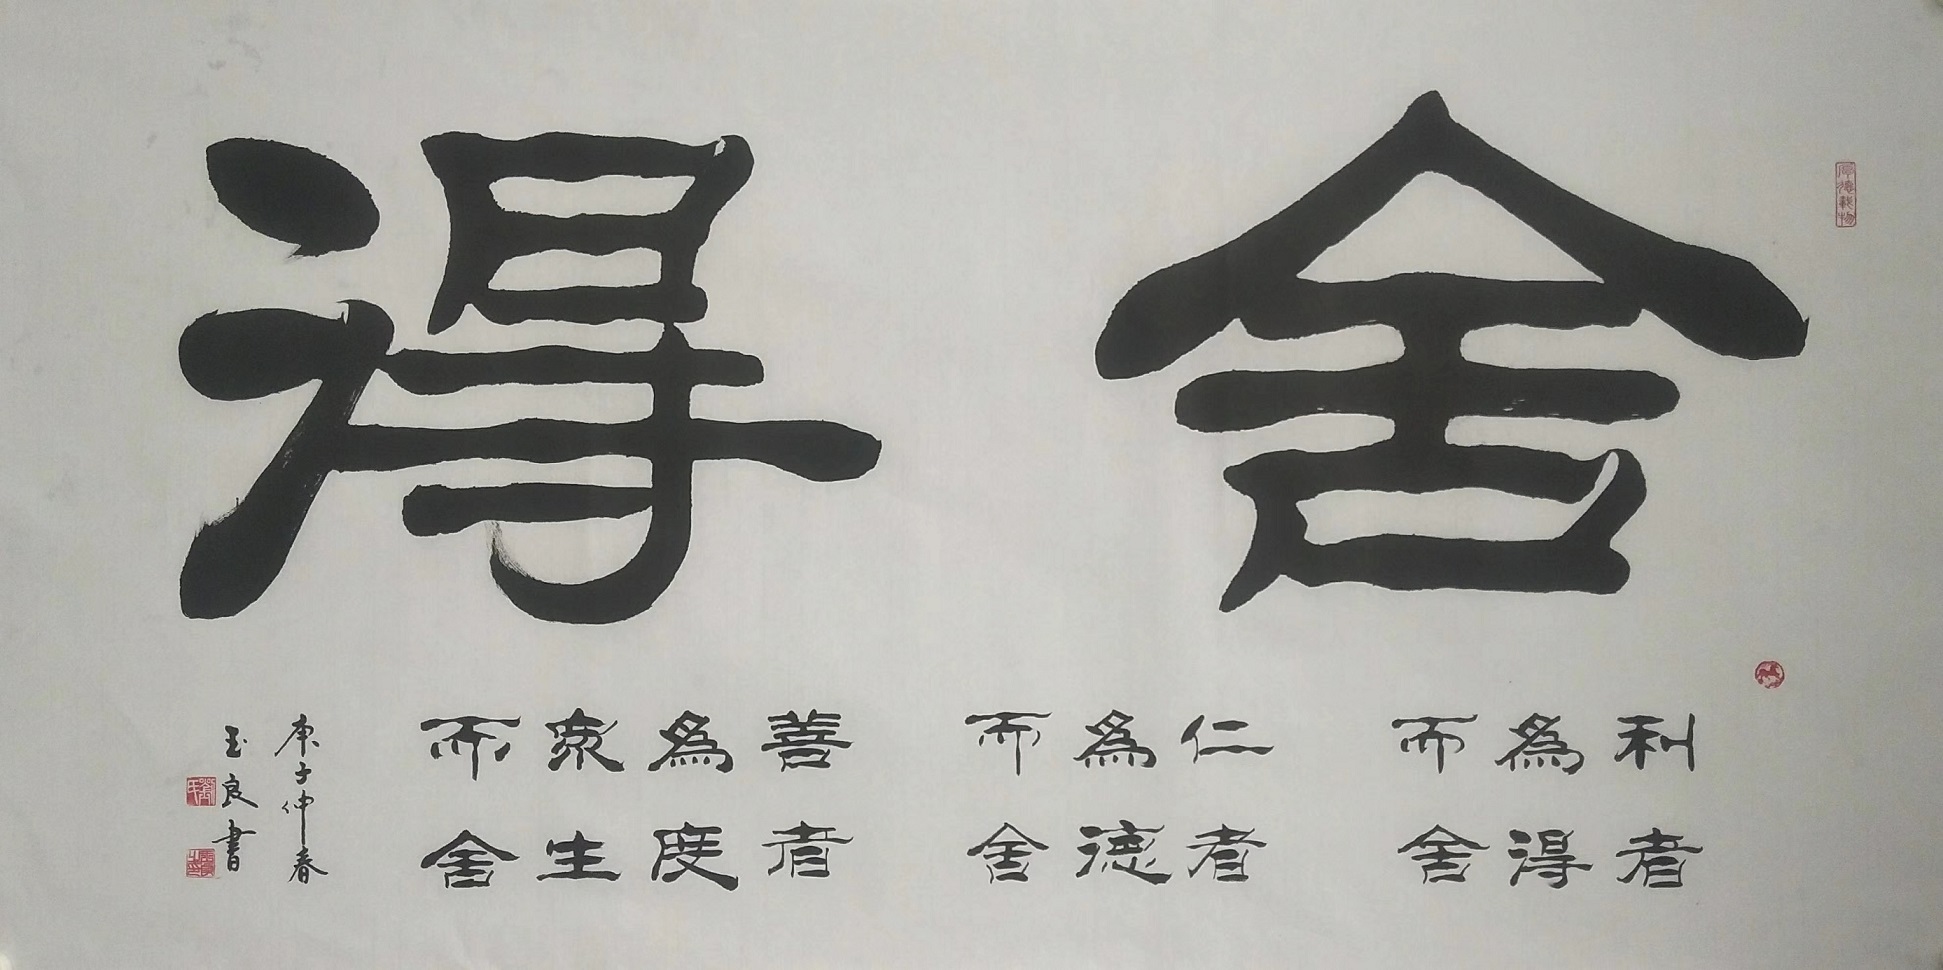 舍得
利者
為得
而舍
仁者
為德
而舍
善者
為度
眾生
而舍
庚子仲春
玉良書
厚德載物